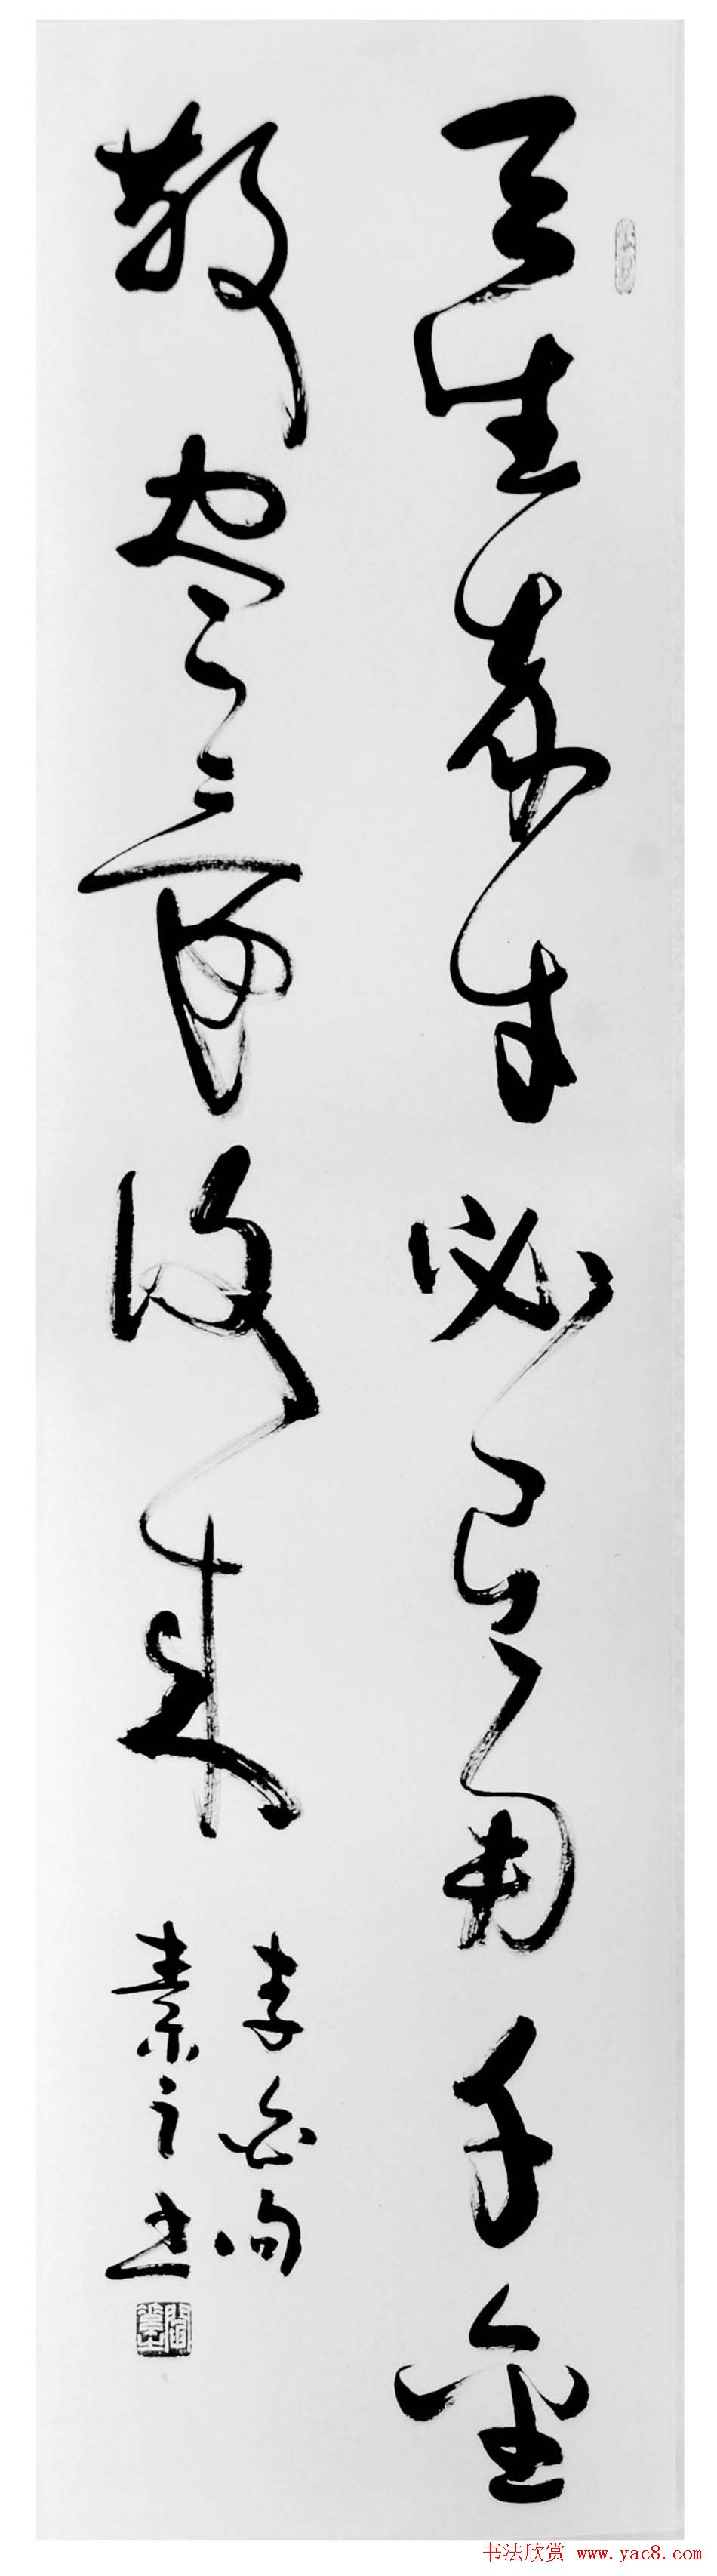 天生我才必有用千金
散盡還復來
李白句
素之书
书法欣赏 www.yac8.com